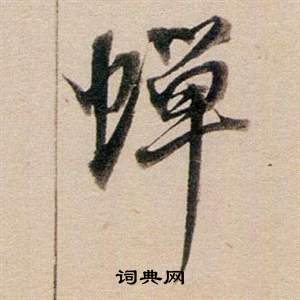 蝉
词典网